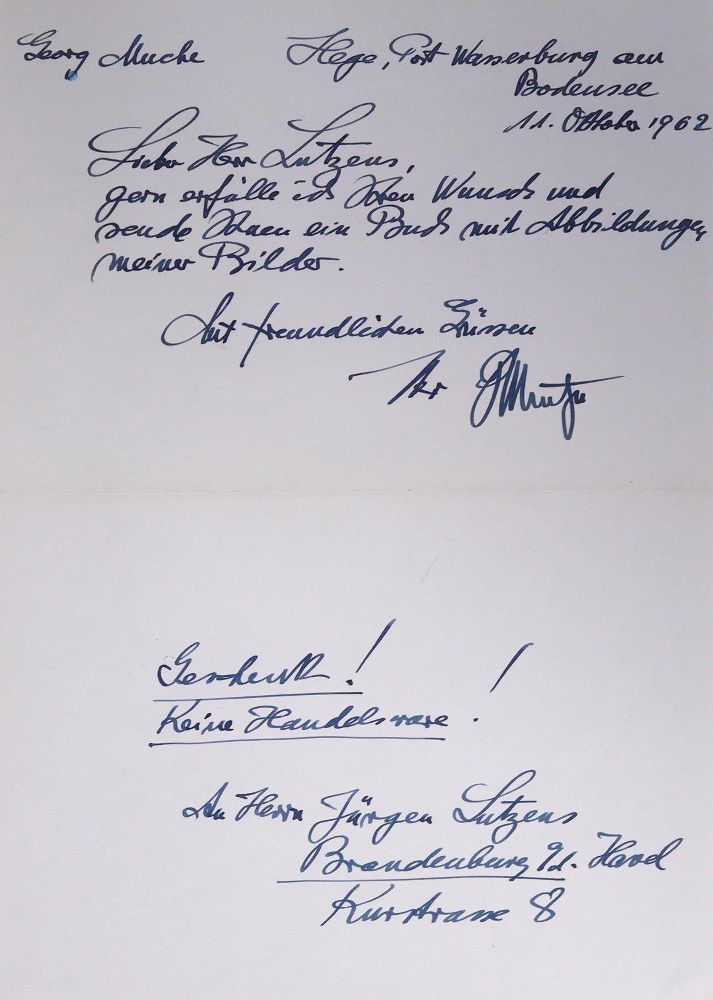 Georg Muche Hege, Post Wasserburg am
Bodensee
11. Oktober 1962
Lieber Herr Lutzens,
gern erfülle ich Ihren Wunsch und
sende Ihnen ein Buch mit Abbildungen
meiner Bilder.
Mit freundlichen Grüssen
Ihr GMuche
Geschenk!
Keine Handelsware!
An Herrn Jürgen Lutzens
Brandenburg a/d. Havel
Kurstrasse 8